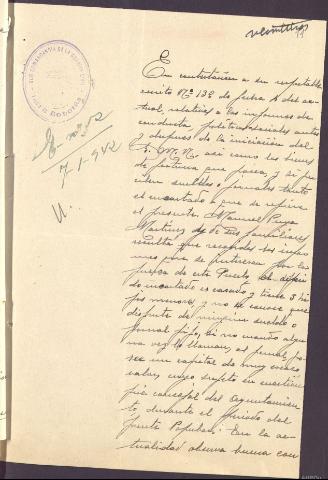 En contestación a su respetable
escrito Nº 132 de fecha 1 del ac-
tual, relativo a los informes de
conducta político-sociales antes
y después de la iniciación del
G. M. N., así como los bienes
de fortuna que posea, y si per-
ciben sueldos o jornales tanto
el encartado a que se refiere
el presente, Manuel Puga
Martínez, de sus familiares
resulta que recogidos los infor-
mes que se interesan por la
fuerza de este Puesto, el
encartado es casado y tiene 3 hi-
jos menores, y no se conoce que
disfrute de ningún sueldo o
jornal fijo, si no cuando algu-
na vez lo llaman, al jornal, po-
see un capital de muy escaso
valor, cuyo sujeto en cuestión
fué concejal del Ayuntamien-
to, durante el periodo del
Frente Popular. En la ac-
tualidad observa buena con
7-1-942